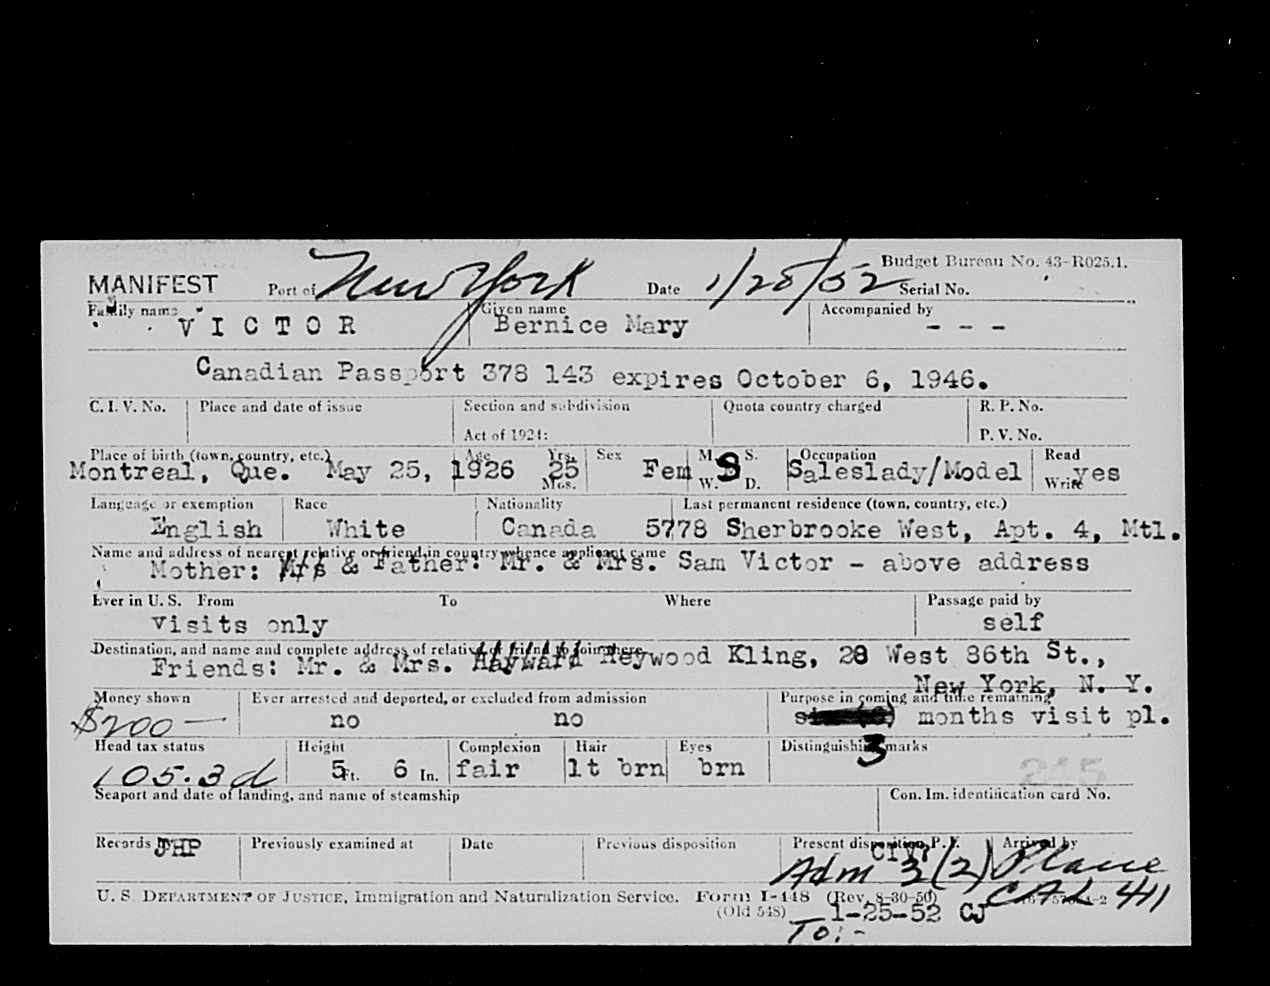 Budget Bureau No. 43-R025.1.
MANIFEST Port of New York Date 1/25/52 Serial No.
Family name VICTOR Given name Bernice Mary Accompanied by - - -
Canadian Passport 378 143 expires October 6, 1946.
C. I. V. No. Place and date of issue Section and subdivision Quota country charged R. P. No.
Act of 1924: P. V. No.
Place of birth (town, country, etc.) Age Yrs. Sex M. S. Occupation Read
Montreal, Que. May 25, 1926 25 Fem S Saleslady/Model yes
Mos. W. D. Write
Language or exemption Race Nationality Last permanent residence (town, country, etc.)
English White Canada 5778 Sherbrooke West, Apt. 4, Mtl.
Name and address of nearest relative or friend in country whence applicant came
Mother: Mrs & Father: Mr. & Mrs. Sam Victor - above address
Ever in U. S. From To Where Passage paid by
visits only self
Destination, and name and complete address of relative or friend to join there
Friends: Mr. & Mrs. Hayward Heywood Kling, 28 West 86th St.,
New York, N. Y.
Money shown Ever arrested and deported, or excluded from admission Purpose in coming and time remaining
$200— no no months visit pl.
3
Head tax status Height Complexion Hair Eyes Distinguishing marks
105.3d 5 Ft. 6 In. fair lt brn brn 245
Seaport and date of landing, and name of steamship Con. Im. identification card No.
Records by JHP Previously examined at Date Previous disposition Present disposition P. I. Arrived by
CIV?
Adm 3(2) Plane
CAL 411
U. S. DEPARTMENT OF JUSTICE, Immigration and Naturalization Service. Form I-448 (Rev. 8-30-50)
(Old 548) 1-25-52 CJ
To:-